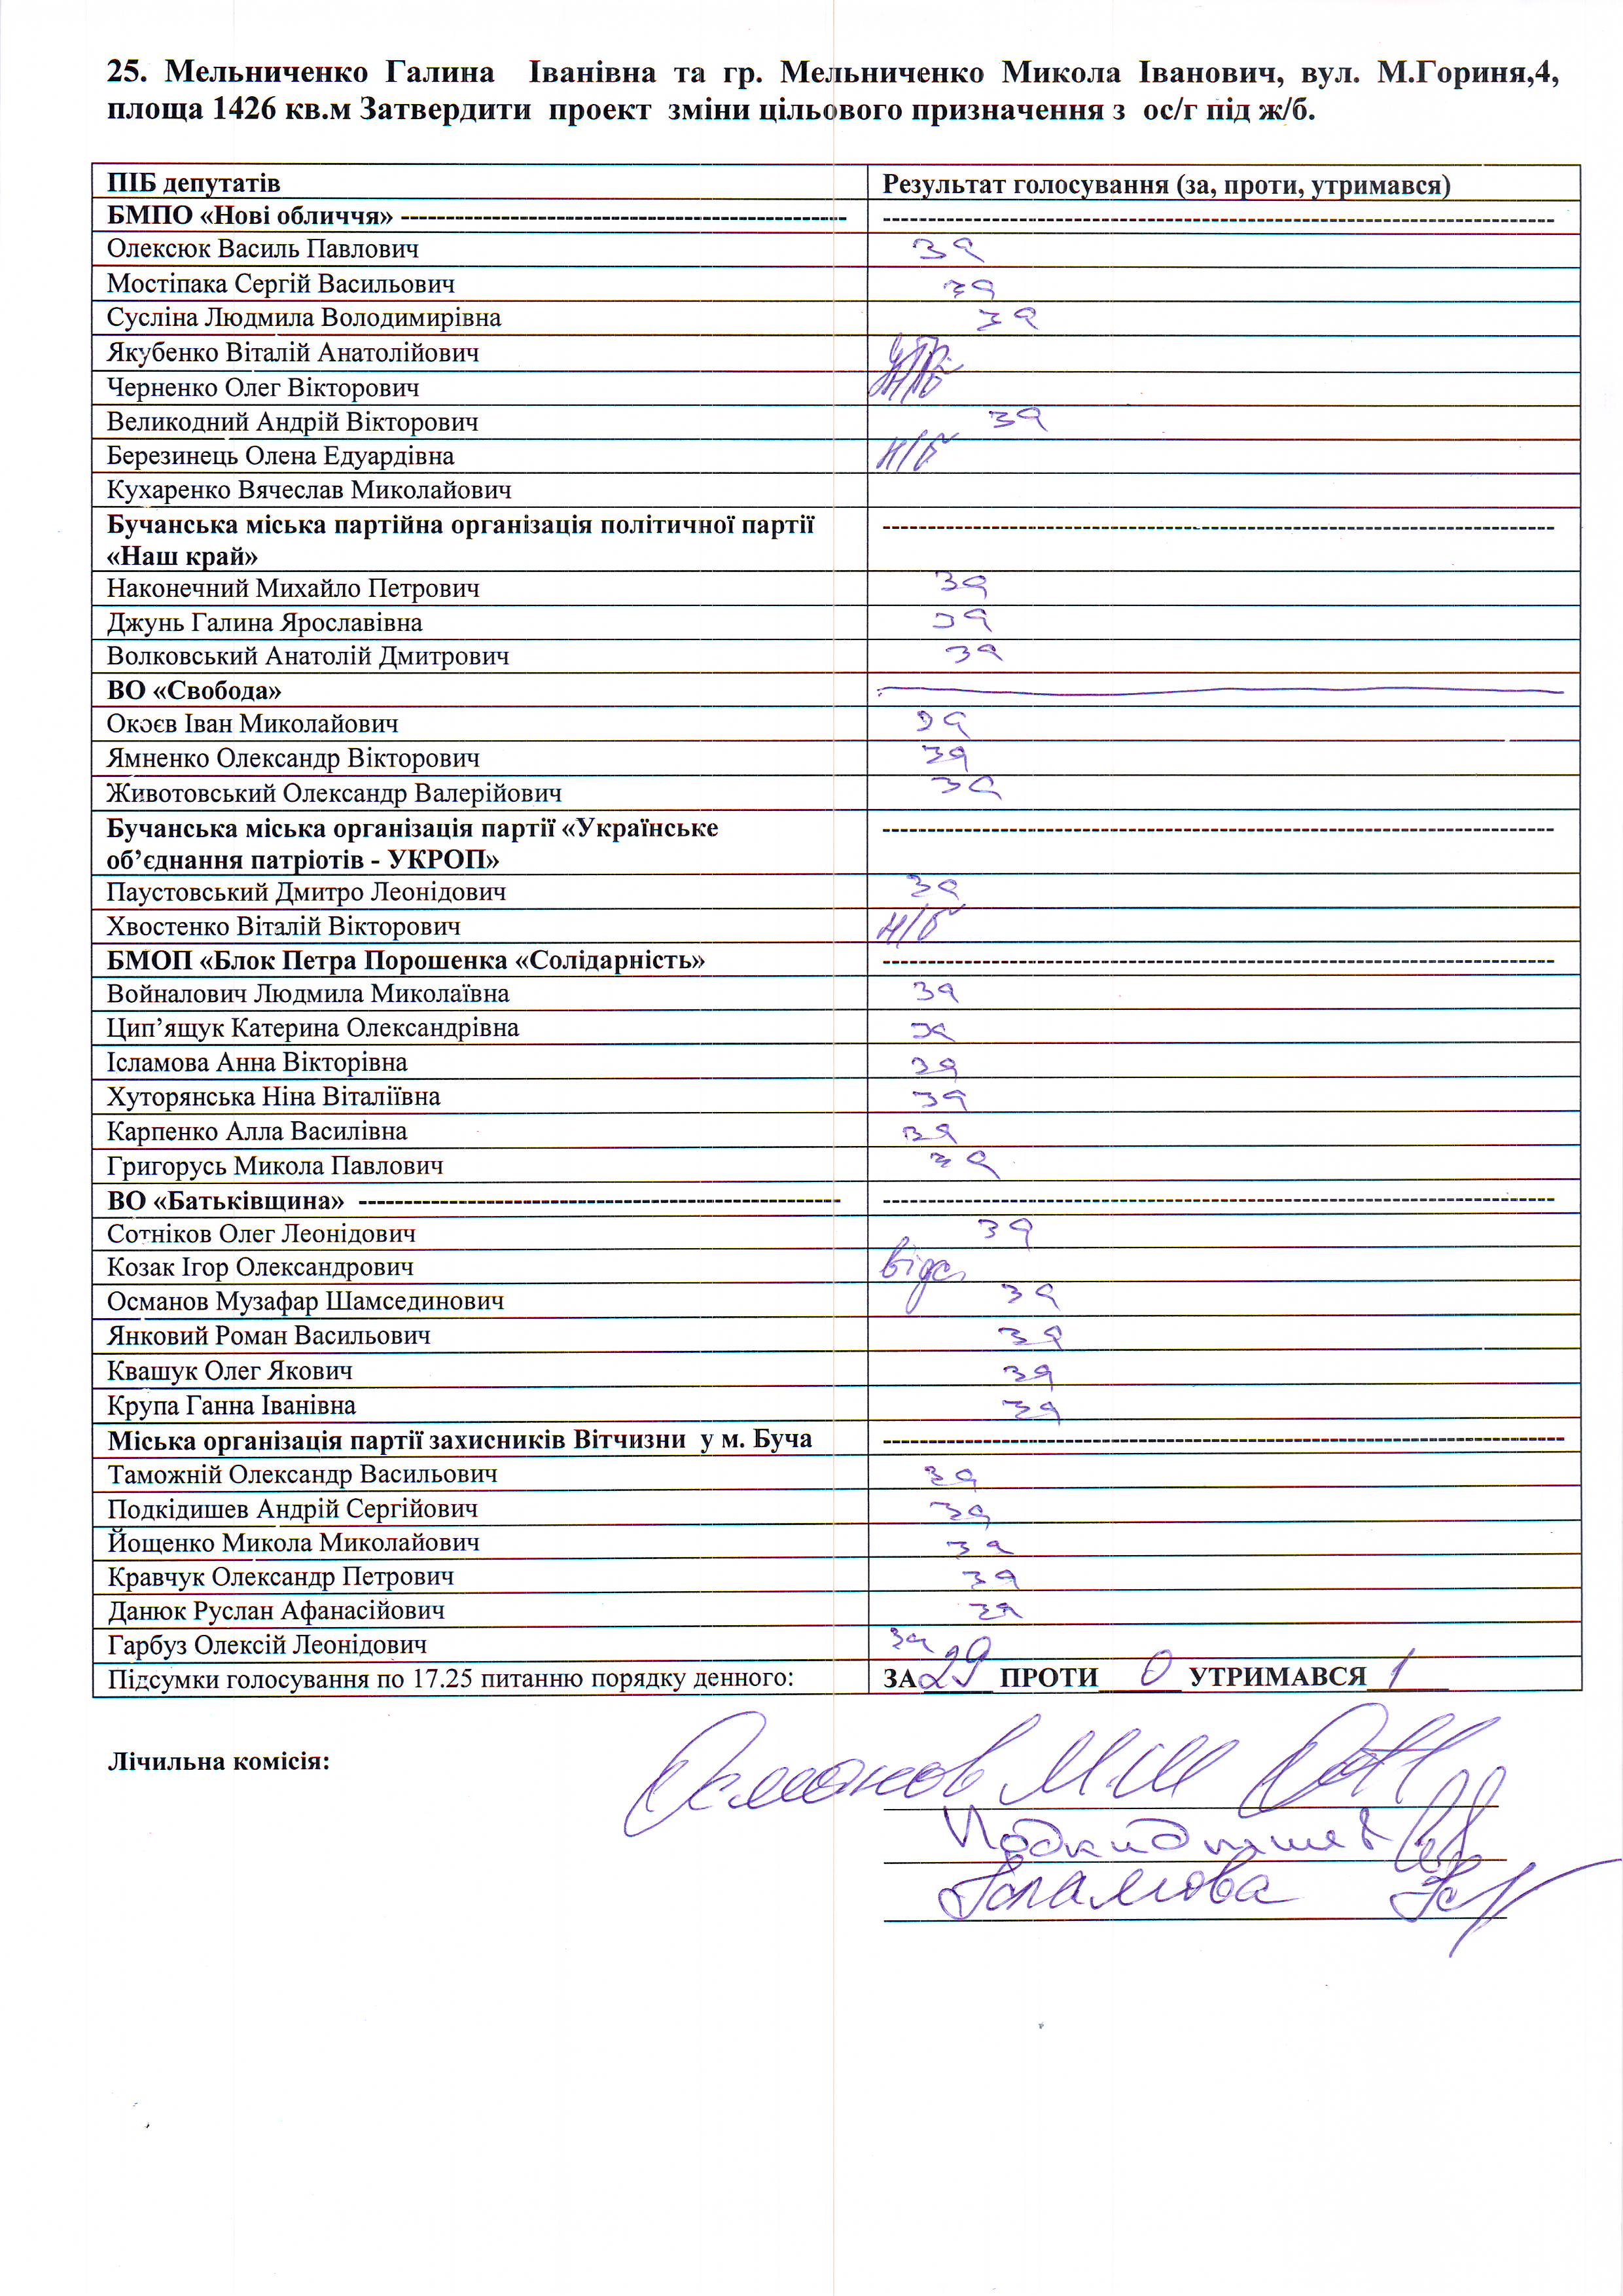 25. Мельниченко Галина Іванівна та гр. Мельниченко Микола Іванович, вул. М.Гориня,4,
площа 1426 кв.м Затвердити проект зміни цільового призначення з ос/г під ж/б.
ПІБ депутатів Результат голосування (за, проти, утримався)
БМПО «Нові обличчя» ------------------------------------------------- --------------------------------------------------------------------------
Олексюк Василь Павлович за
Мостіпака Сергій Васильович за
Сусліна Людмила Володимирівна за
Якубенко Віталій Анатолійович
Черненко Олег Вікторович н/б
Великодний Андрій Вікторович за
Березинець Олена Едуардівна н/б
Кухаренко Вячеслав Миколайович
Бучанська міська партійна організація політичної партії --------------------------------------------------------------------------
«Наш край»
Наконечний Михайло Петрович за
Джунь Галина Ярославівна за
Волковський Анатолій Дмитрович за
ВО «Свобода»
Окоєв Іван Миколайович за
Ямненко Олександр Вікторович за
Животовський Олександр Валерійович за
Бучанська міська організація партії «Українське --------------------------------------------------------------------------
об’єднання патріотів - УКРОП»
Паустовський Дмитро Леонідович за
Хвостенко Віталій Вікторович н/б
БМОП «Блок Петра Порошенка «Солідарність» --------------------------------------------------------------------------
Войналович Людмила Миколаївна за
Цип’ящук Катерина Олександрівна за
Ісламова Анна Вікторівна за
Хуторянська Ніна Віталіївна за
Карпенко Алла Василівна за
Григорусь Микола Павлович за
ВО «Батьківщина» ----------------------------------------------------- --------------------------------------------------------------------------
Сотніков Олег Леонідович за
Козак Ігор Олександрович відс
Османов Музафар Шамсединович за
Янковий Роман Васильович за
Квашук Олег Якович за
Крупа Ганна Іванівна за
Міська організація партії захисників Вітчизни у м. Буча ---------------------------------------------------------------------------
Таможній Олександр Васильович за
Подкідишев Андрій Сергійович за
Йощенко Микола Миколайович за
Кравчук Олександр Петрович за
Данюк Руслан Афанасійович за
Гарбуз Олексій Леонідович за
Підсумки голосування по 17.25 питанню порядку денного: ЗА 29 ПРОТИ 0 УТРИМАВСЯ 1
Лічильна комісія: Османов М Ш
Подкидишев
Ісламова